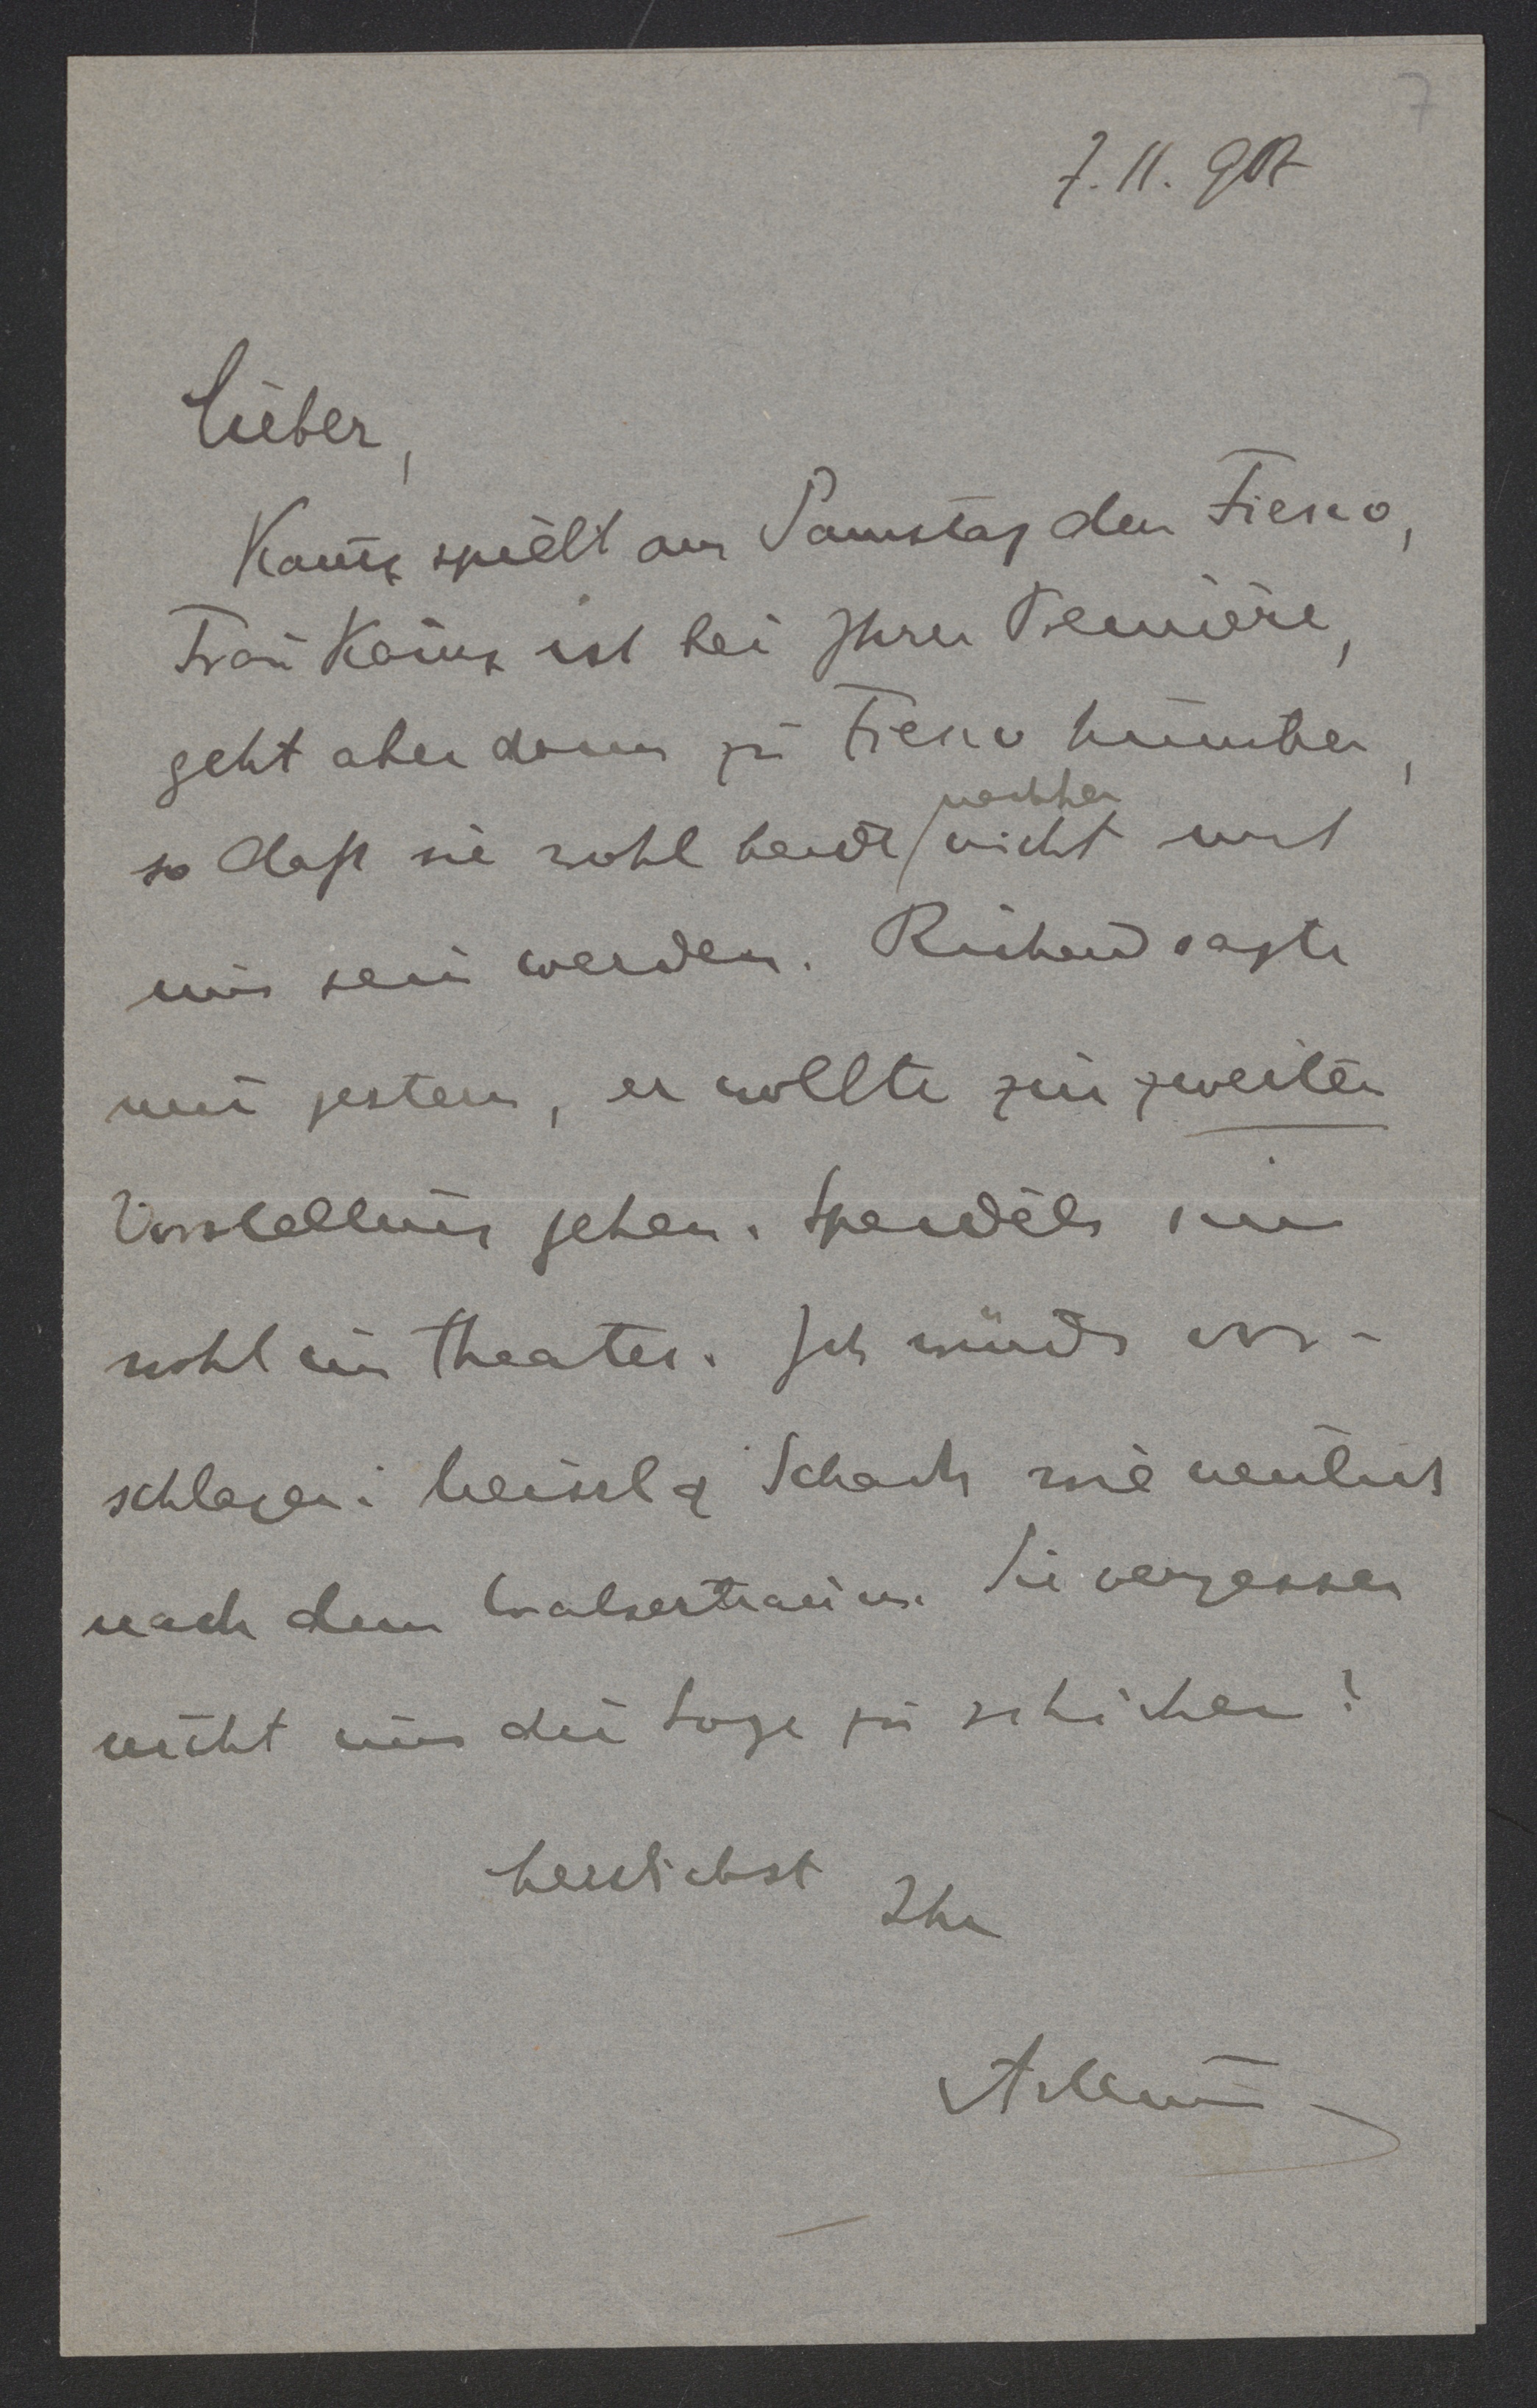 7
7. 11. 907
Lieber,
Kainz spielt am Samstag den Fiesko,
Frau Kainz ist bei Ihrer Première,
geht aber dann zu Fiesko hinüber,
nachher
so daß sie wohl beide nicht mit
uns sein werden. Richard sagte
mir gestern, er wollte zur zweiten
Vorstellung gehen. Speidels sind
wohl im Theater. Ich würde vor-
schlagen: Meissl & Schadn wie neulich
nach dem Walzertraum. Sie vergessen
nicht uns die Loge zu schicken?
herzlichst Ihr
Arthur